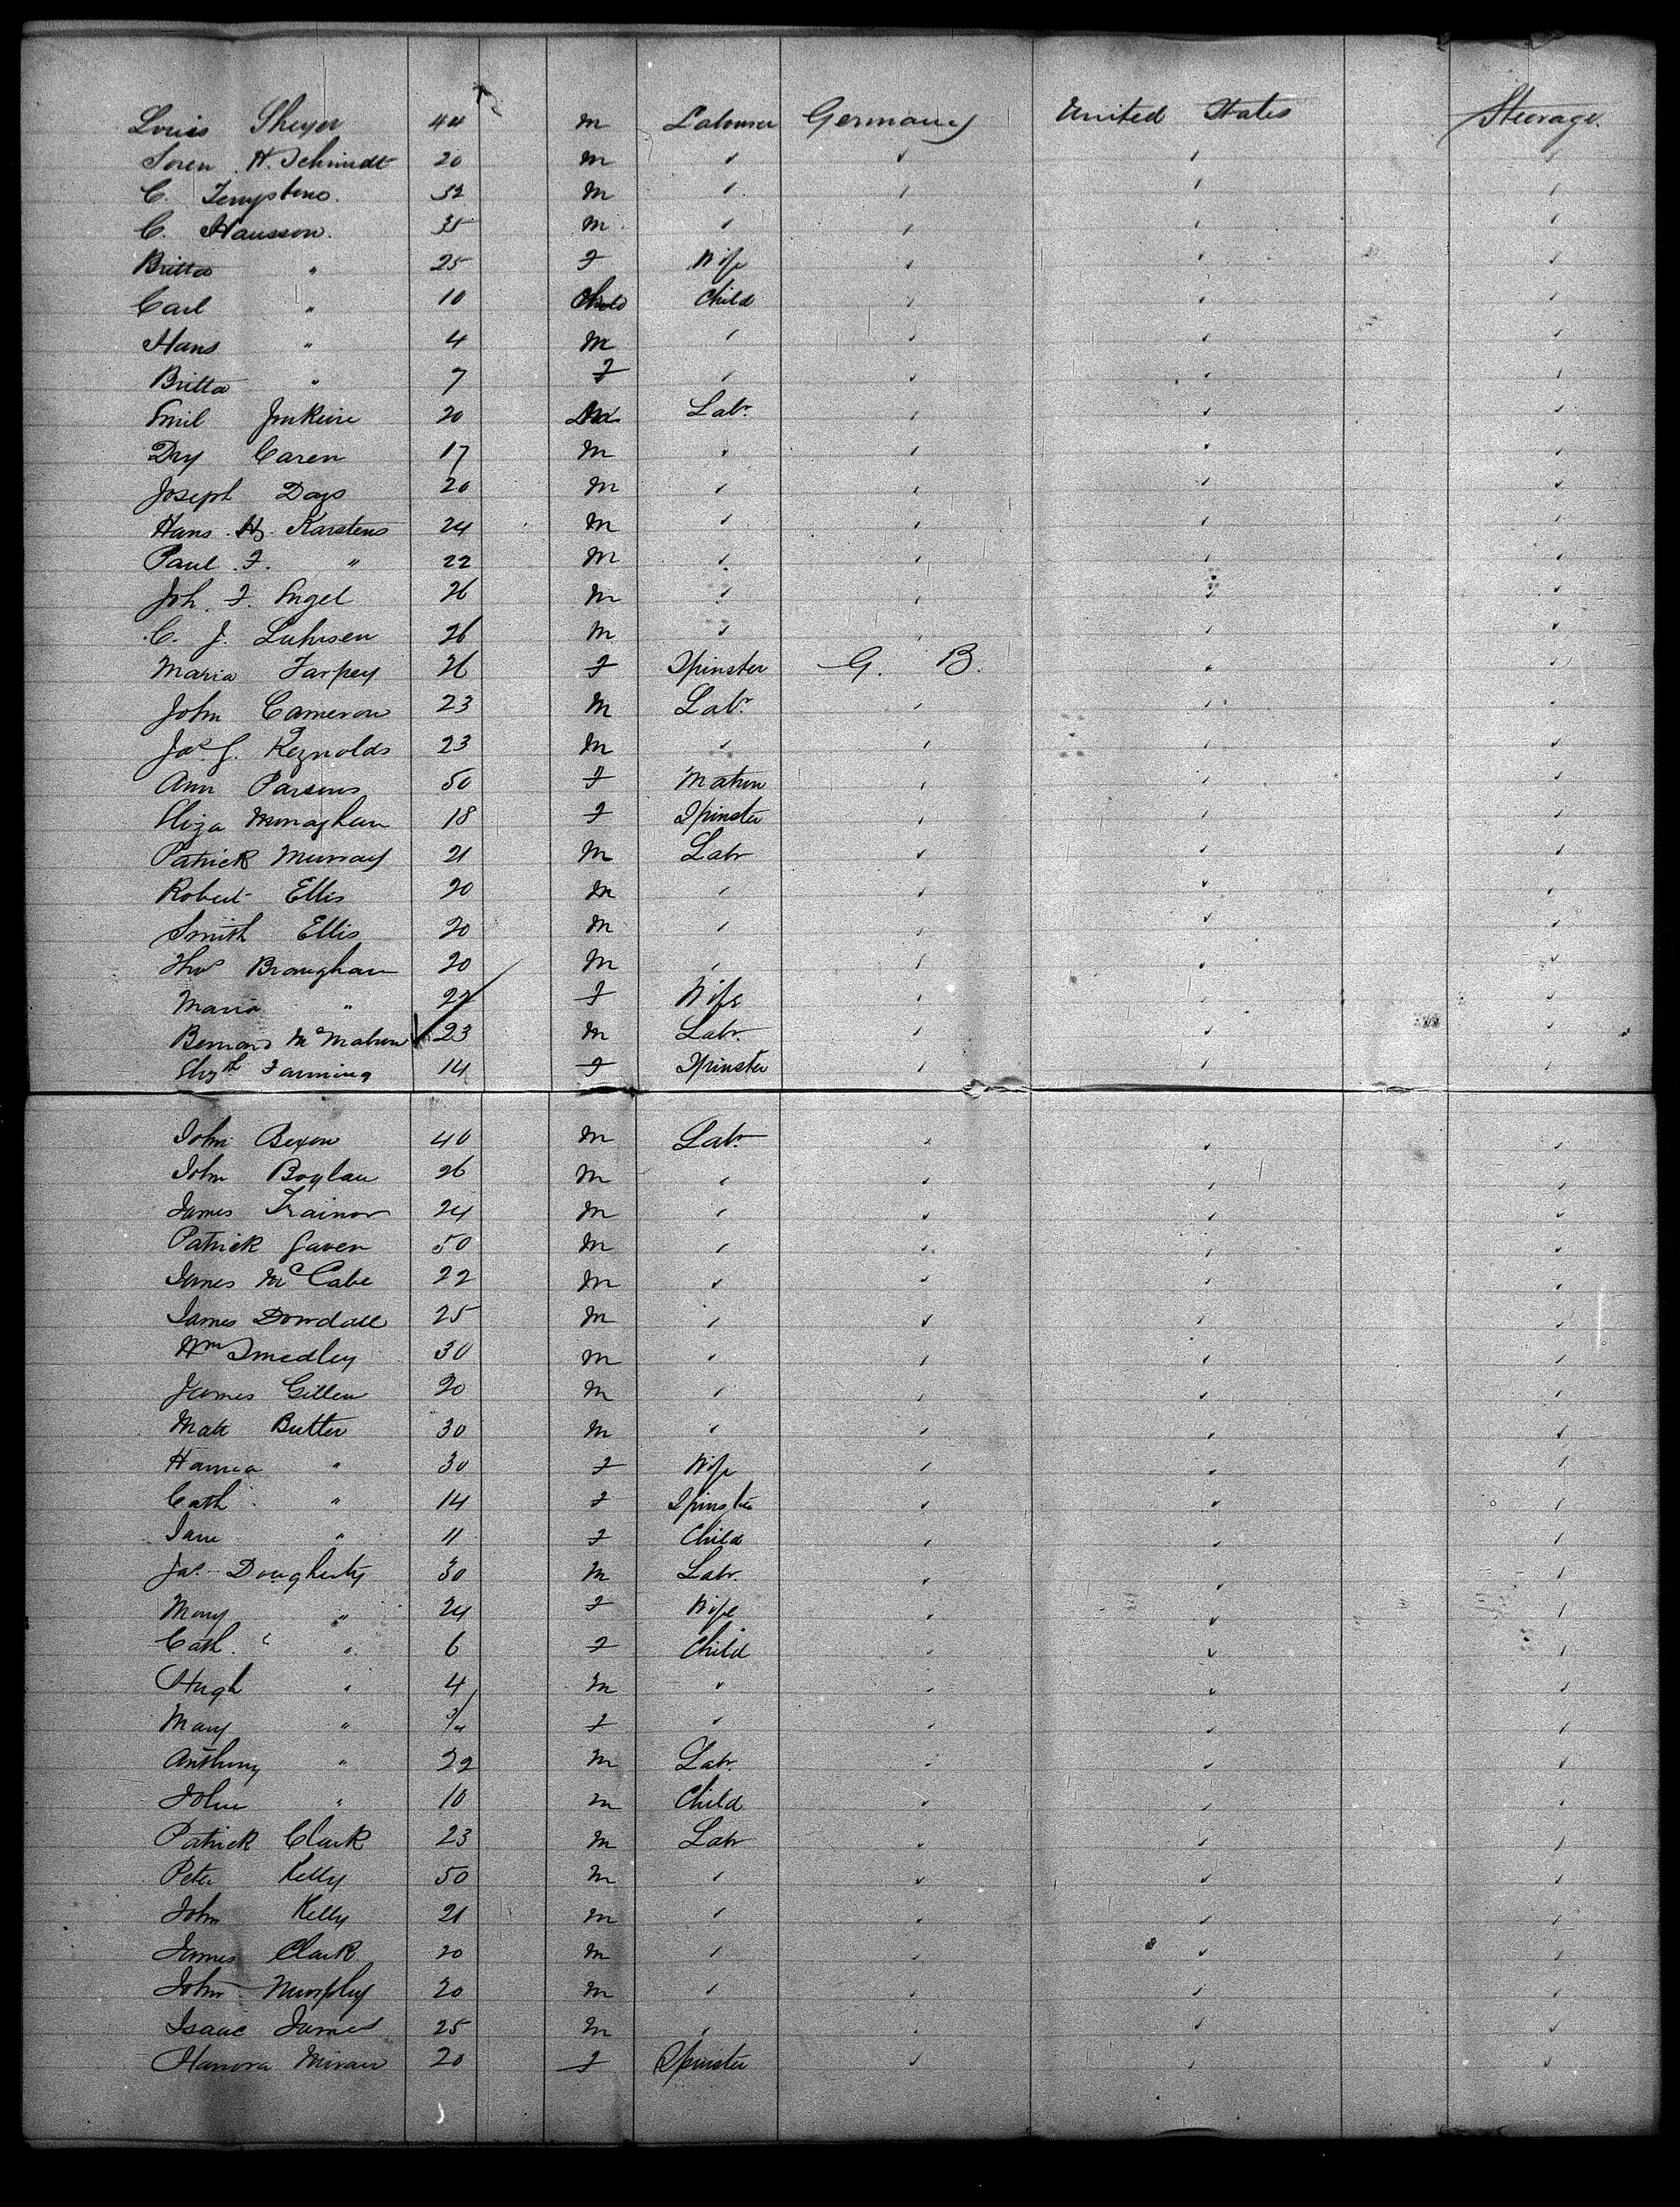 Louis Sheyer 44 M Labourer Germany United States Steerage.
Soren H. Schmidt 20 M ✓ ✓ ✓ ✓
C. 32 M ✓ ✓ ✓ ✓
C. Hansson. 35 M ✓ ✓ ✓ ✓
Britta " 25 F Wife ✓ ✓ ✓
Carl " 10 Child Child ✓ ✓ ✓
Hans " 4 M ✓ ✓ ✓ ✓
Britta " 7 F ✓ ✓ ✓ ✓
Emil 20 Labr. ✓ ✓ ✓
Dry Caren 17 M ✓ ✓ ✓ ✓
Joseph Days 20 M ✓ ✓ ✓ ✓
Hans H. Karstens 24 M ✓ ✓ ✓ ✓
Paul F. " 22 M ✓ ✓ ✓ ✓
Joh. F. Engel 26 M ✓ ✓ ✓ ✓
C. J. Luhrsen 26 M ✓ ✓ ✓ ✓
Maria Tarpey 26 F Spinster G. B. ✓ ✓
John Cameron 23 M Labr. ✓ ✓ ✓
Jas. J. Reynolds 23 M ✓ ✓ ✓ ✓
Ann Parsons 50 F Matron ✓ ✓ ✓
Eliza Monaghan 18 F Spinster ✓ ✓ ✓
Patrick Murray 21 M Labr ✓ ✓ ✓
Robert Ellis 20 M ✓ ✓ ✓ ✓
Smith Ellis 20 M ✓ ✓ ✓ ✓
Thos Branghan 20 M ✓ ✓ ✓ ✓
Maria " 22 F Wife ✓ ✓ ✓
Bernard McMahon 23 M Labr. ✓ ✓ ✓
Elizth Fanning 14 F Spinster ✓ ✓ ✓
John Bexon 40 M Labr ✓ ✓ ✓
John Boylan 26 M ✓ ✓ ✓ ✓
James Trainor 24 M ✓ ✓ ✓ ✓
Patrick Gaven 50 M ✓ ✓ ✓ ✓
James McCabe 22 M ✓ ✓ ✓ ✓
James Dowdall 25 M ✓ ✓ ✓ ✓
Wm Smedley 30 M ✓ ✓ ✓ ✓
James Gillen 20 M ✓ ✓ ✓ ✓
Matt Butter 30 M ✓ ✓ ✓ ✓
" 30 F Wife ✓ ✓ ✓
Cath " 14 F Spinster ✓ ✓ ✓
Jane " 11 F Child ✓ ✓ ✓
Jas. Dougherty 30 M Labr. ✓ ✓ ✓
Mary " 24 F Wife ✓ ✓ ✓
Cath. " 6 F Child ✓ ✓ ✓
Hugh " 4 M ✓ ✓ ✓ ✓
Mary " 3/4 F ✓ ✓ ✓ ✓
Anthony " 22 M Labr. ✓ ✓ ✓
John " 10 M Child ✓ ✓ ✓
Patrick Clark 23 M Labr ✓ ✓ ✓
Peter Kelly 50 M ✓ ✓ ✓ ✓
John Kelly 21 M ✓ ✓ ✓ ✓
James Clark 20 M ✓ ✓ ✓ ✓
John Murphy 20 M ✓ ✓ ✓ ✓
Isaac James 25 M ✓ ✓ ✓ ✓
Hanora Moran 20 F Spinster ✓ ✓ ✓